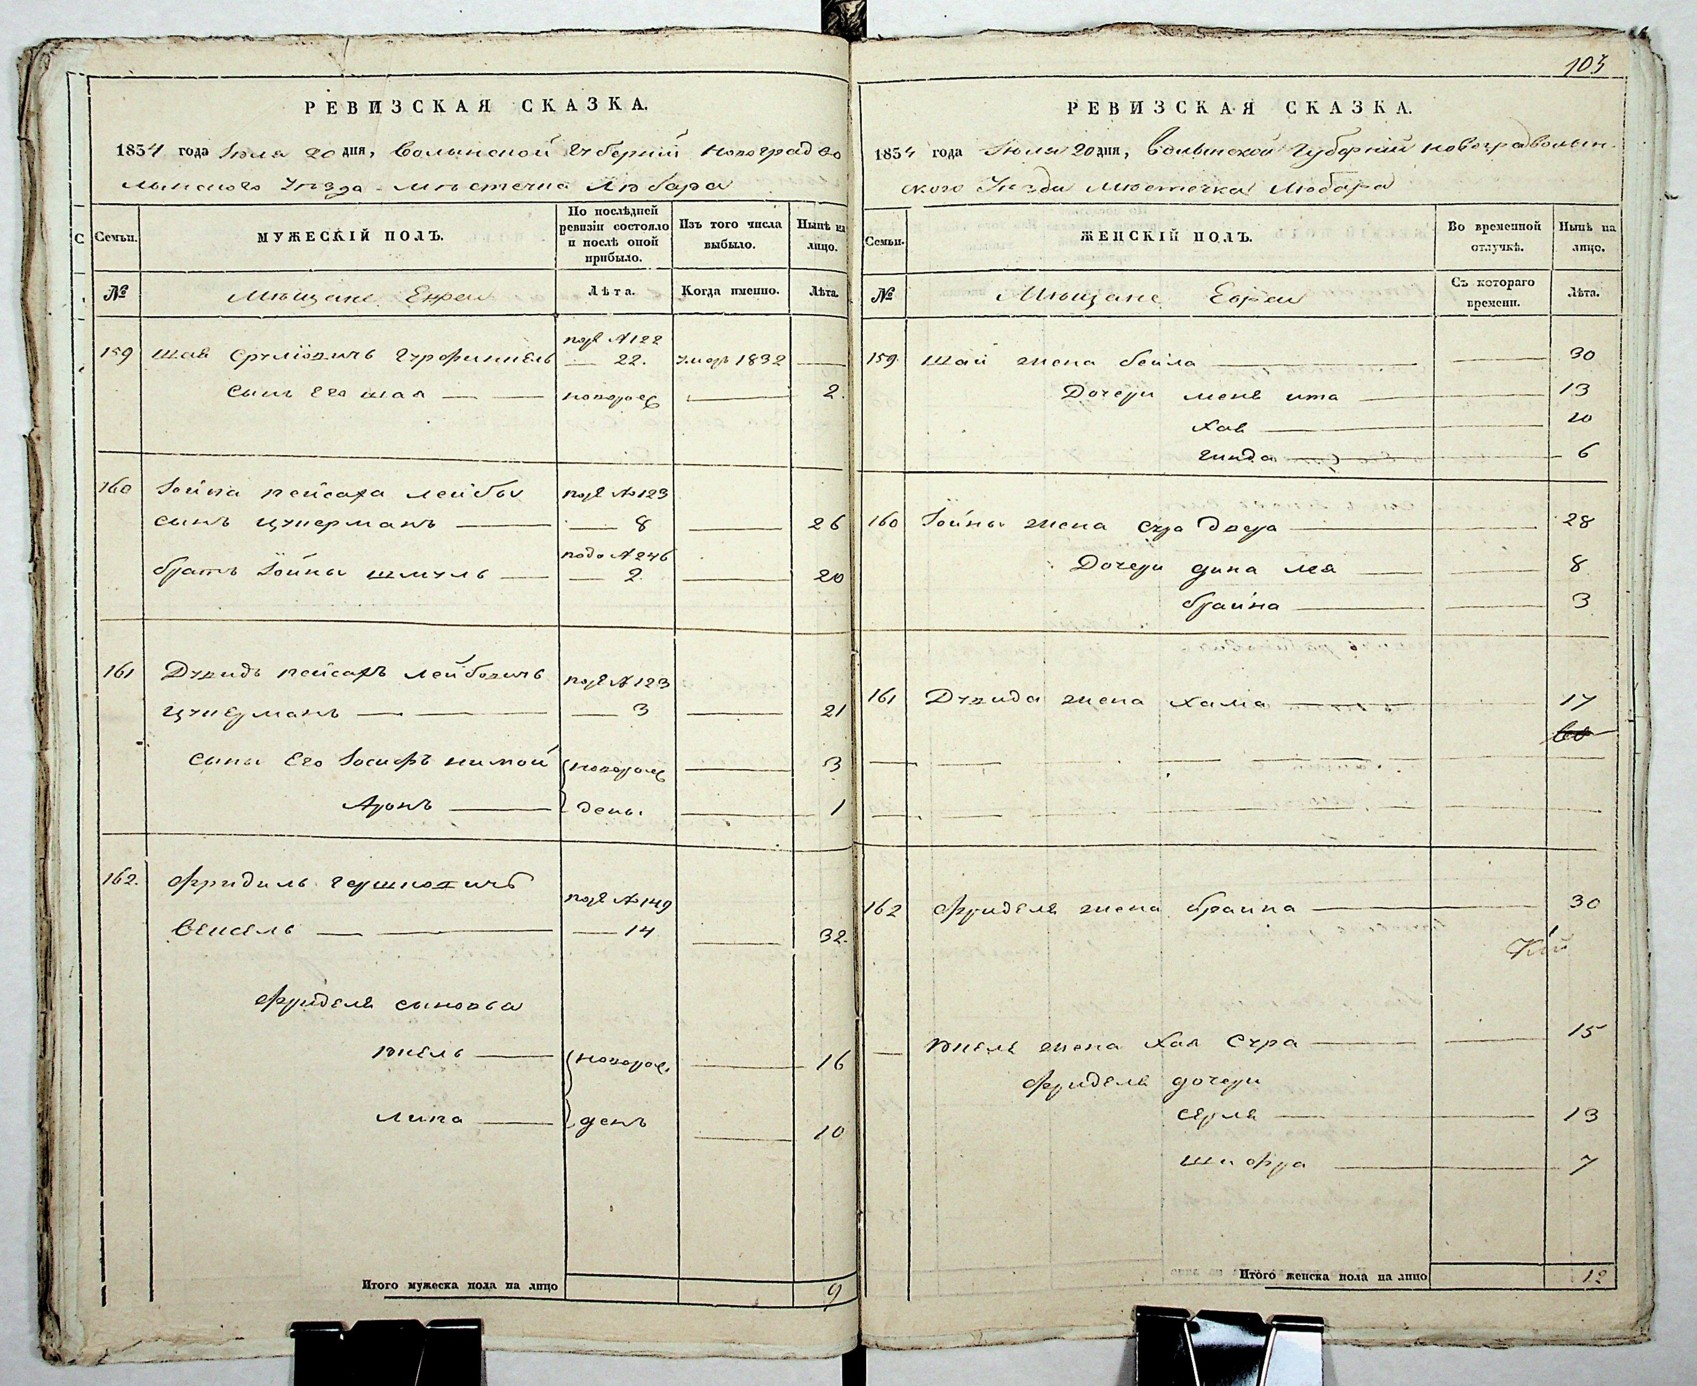 103
РЕВИЗСКАЯ СКАЗКА.
1854 года Iюля 20 дня, Волынской Губернiи Новоградво
лынского Уѣзда мѣстечка Любара
Семьи.
МУЖЕСКIЙ ПОЛЪ.
По послѣдней ревизiи состояло и послѣ оной прибыло.
Изъ того числа выбыло.
Нынѣ на лицо.
№
Мѣщане Евреи
Лѣта.
Когда именно.
Лѣта.
подъ №122
159 Шая Сруліовичъ Гурфинкель 22. умеръ 1832
сынъ его шая новорож 2.
160 Iойна пейсаха лейбы подъ №123
сынъ цукерманъ 8 26
подъ №246
братъ Iойны шмуль 2 20
161 Дувидъ пейсахъ лейбовичъ подъ №123
цукерманъ 3 21
сыны его Iосифъ нимой новорож 3
Аронъ день. 1
162. Фридель Гершковичъ подъ №149
Вексель 14 32.
Фриделя сыновья
новорож. 16
Липа день 10
Итого мужеска пола на лицо 9
РЕВИЗСКАЯ СКАЗКА.
1854 года Iюля 20 дня, Волынской Губернiи Новоградволын-
ского Уѣзда мѣстечка Любара
Семьи.
ЖЕНСКIЙ ПОЛЪ.
Во временной отлучкѣ.
Нынѣ на лицо.
№
Мѣщане Евреи
Съ котораго времени.
Лѣта.
159. Шаи жена бейла 30
Дочери мене ита 13
Хая 10
гинда 6
160 Iойны жена сура двора 28
Дочери дина лея 8
брайна 3
161 Дувида жена хама 17
162 Фриделя жена брайна 30
жена Хая Сура 15
Фриделя дочери
серля 13
шифра 7
Итого женска пола на лицо 12